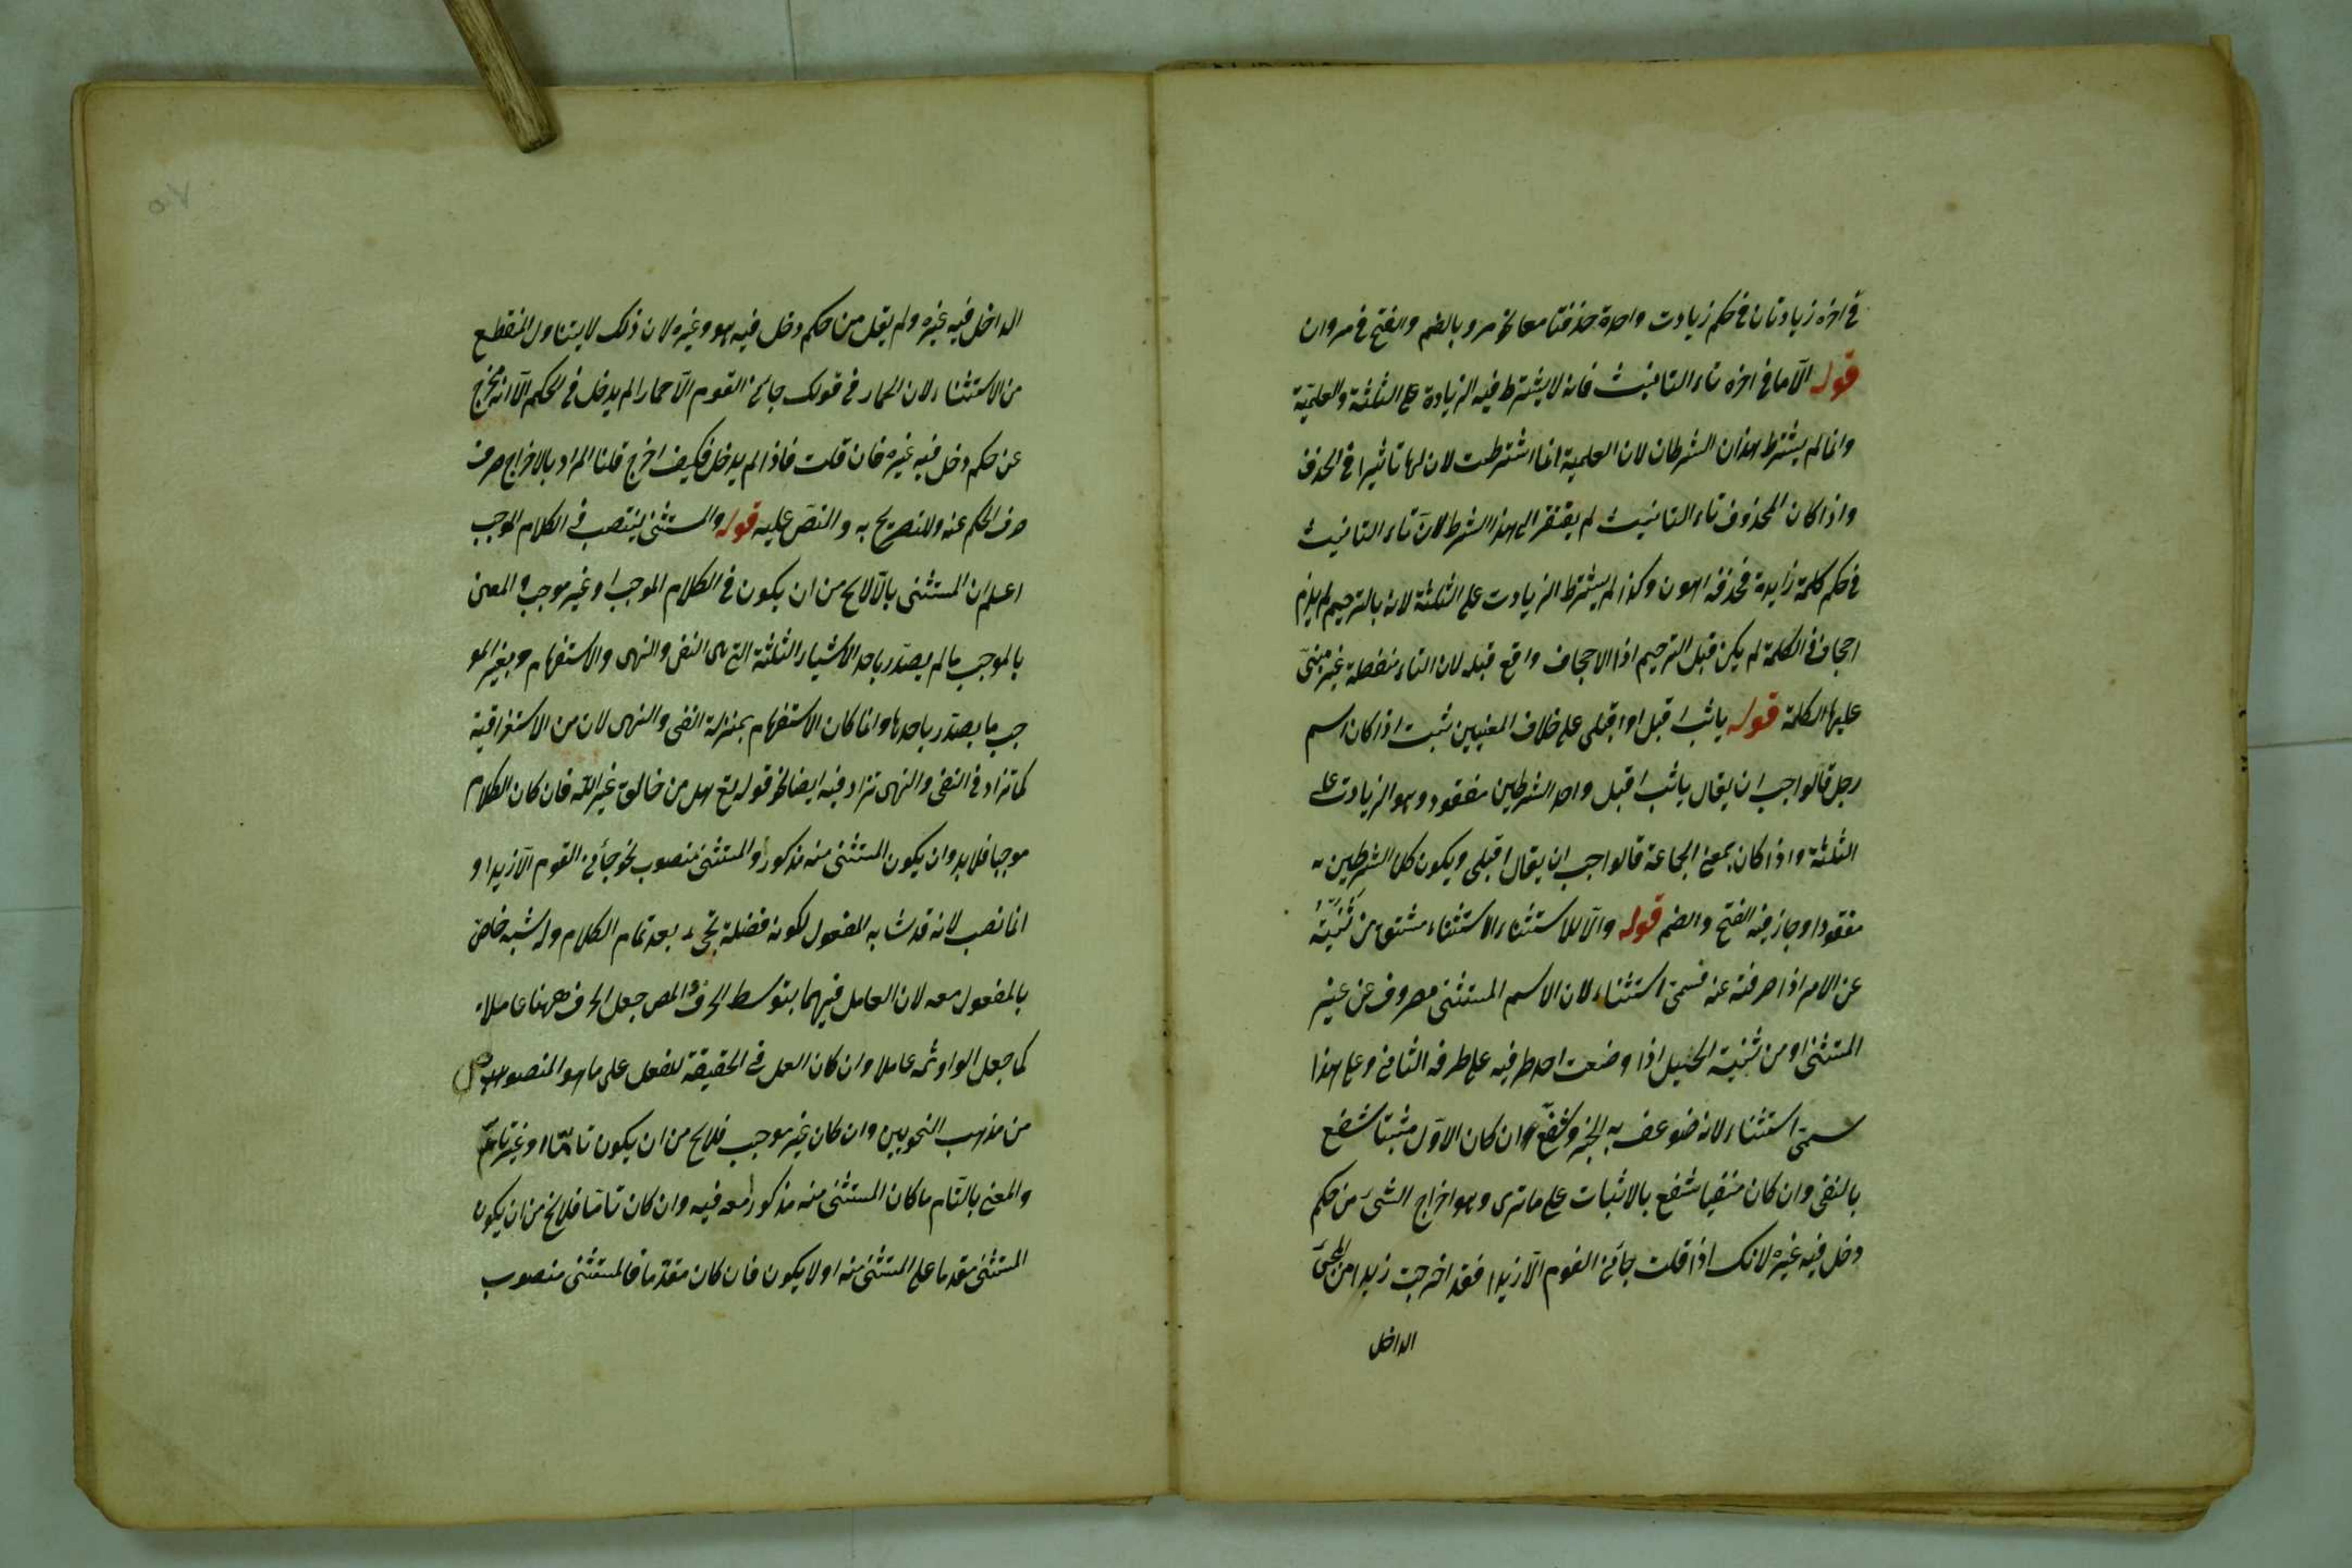 في اخره زيادتان في حكم زيادت واحدة حذفتا معا نحو مرو بالضم والفتح في مروان
قوله الآما في اخره تاء التانيث فانه لا يشترط فيه الزيادة على الثلثة والعلمية
وانما لم يشترط هذان الشرطان لان العلمية انما اشترطت لان لها تاثيرا في الحذف
واذا كان المحذوف تاء التانيث لم يفتقر الى هذا الشرط لان تاء التانيث
في حكم كلمة زايدة فحذفه اهون وكذا لم يشترط الزيادت على الثلثة لانه بالترخيم لم يلزم
اجحاف في الكلمة لم يكن قبل الترخيم اذا الاجحاف واقع قبله لان التاء منفصلة غير مبنى
عليها الكلمة قوله ياثب اقبل او اقبلى على خلاف المعنيين ثبت اذا كان اسم
رجل قالوا جب ان يقال ياثب اقبل واحد الشرطين مفقود وهو الزيادت على
الثلثة واذا كان بمعنى الجماعة قالوا جب ان يقال اقبلى ويكون كلا الشرطين
مفقودا وجاز فيه الفتح والضم قوله والآ للاستثناء الاستثناء مشتق من ثنيته
عن الامر اذا صرفته عنه فسمى استثناء لان الاسم المستثنى مصروف عن غير
المستثنى او من ثنية الحبل اذا وضعت احد طرفيه على طرفه الثانى وعلى هذا
سمى استثناء لانه ضوعف به الخبر وشفع وان كان الاول مثبتا شفع
بالنفى وان كان منفيا شفع بالاثبات على ما ترى وهو اخراج الشئ من حكم
دخل فيه غيره لانك اذا قلت جائنى القوم الآ زيدا فقد اخرجت زيدا من المجئ
الداخل
الداخل فيه غيره ولم يقل من حكم دخل فيه هو وغيره لان ذلك لا يتناول المنقطع
من الاستثناء لان الحمار في قولك جائنى القوم الآ حمارا لم يدخل في الحكم الآ انه مخرج
عن حكم دخل فيه غيره فان قلت فاذا لم يدخل فكيف اخرج قلنا المراد بالاخراج صرف
صرف الحكم عنه ولا تصريح به والنص عليه قوله والمستثنى ينتصب في الكلام الموجب
اعلم ان المستثنى بالآ لايخ من ان يكون في الكلام الموجب او غير موجب والمعنى
بالموجب ما لم يصدر باحد الاشياء الثلثة التي هى النفى والنهى والاستفهام وبغير المو
جب ما يصدر باحدها وانما كان الاستفهام بمنزلة النفى والنهى لان من الاستغراقية
كما تزاد في النفى والنهى تزاد فيه ايضا نحو قوله تع هل من خالق غير الله فان كان الكلام
موجبا فلا بد وان يكون المستثنى منه مذكورا والمستثنى منصوب نحو جائنى القوم الآ زيدا و
انما نصب لانه قد شابه المفعول لكونه فضلة تجئ بعد تمام الكلام وله شبه خاص
بالمفعول معه لان العامل فيهما بتوسط الحرف والمص جعل الحرف ههنا عاملا
كما جعل الواو ثمه عاملا وان كان العمل في الحقيقة للفعل على ما هو المنصوص
من مذهب النحويين وان كان غير موجب فلايخ من ان يكون تاما او غير تام
والمعنى بالتام ما كان المستثنى منه مذكورا معه فيه وان كان تاما فلايخ من ان يكون
المستثنى مقدما على المستثنى منه او لا يكون فان كان مقدما فالمستثنى منصوب